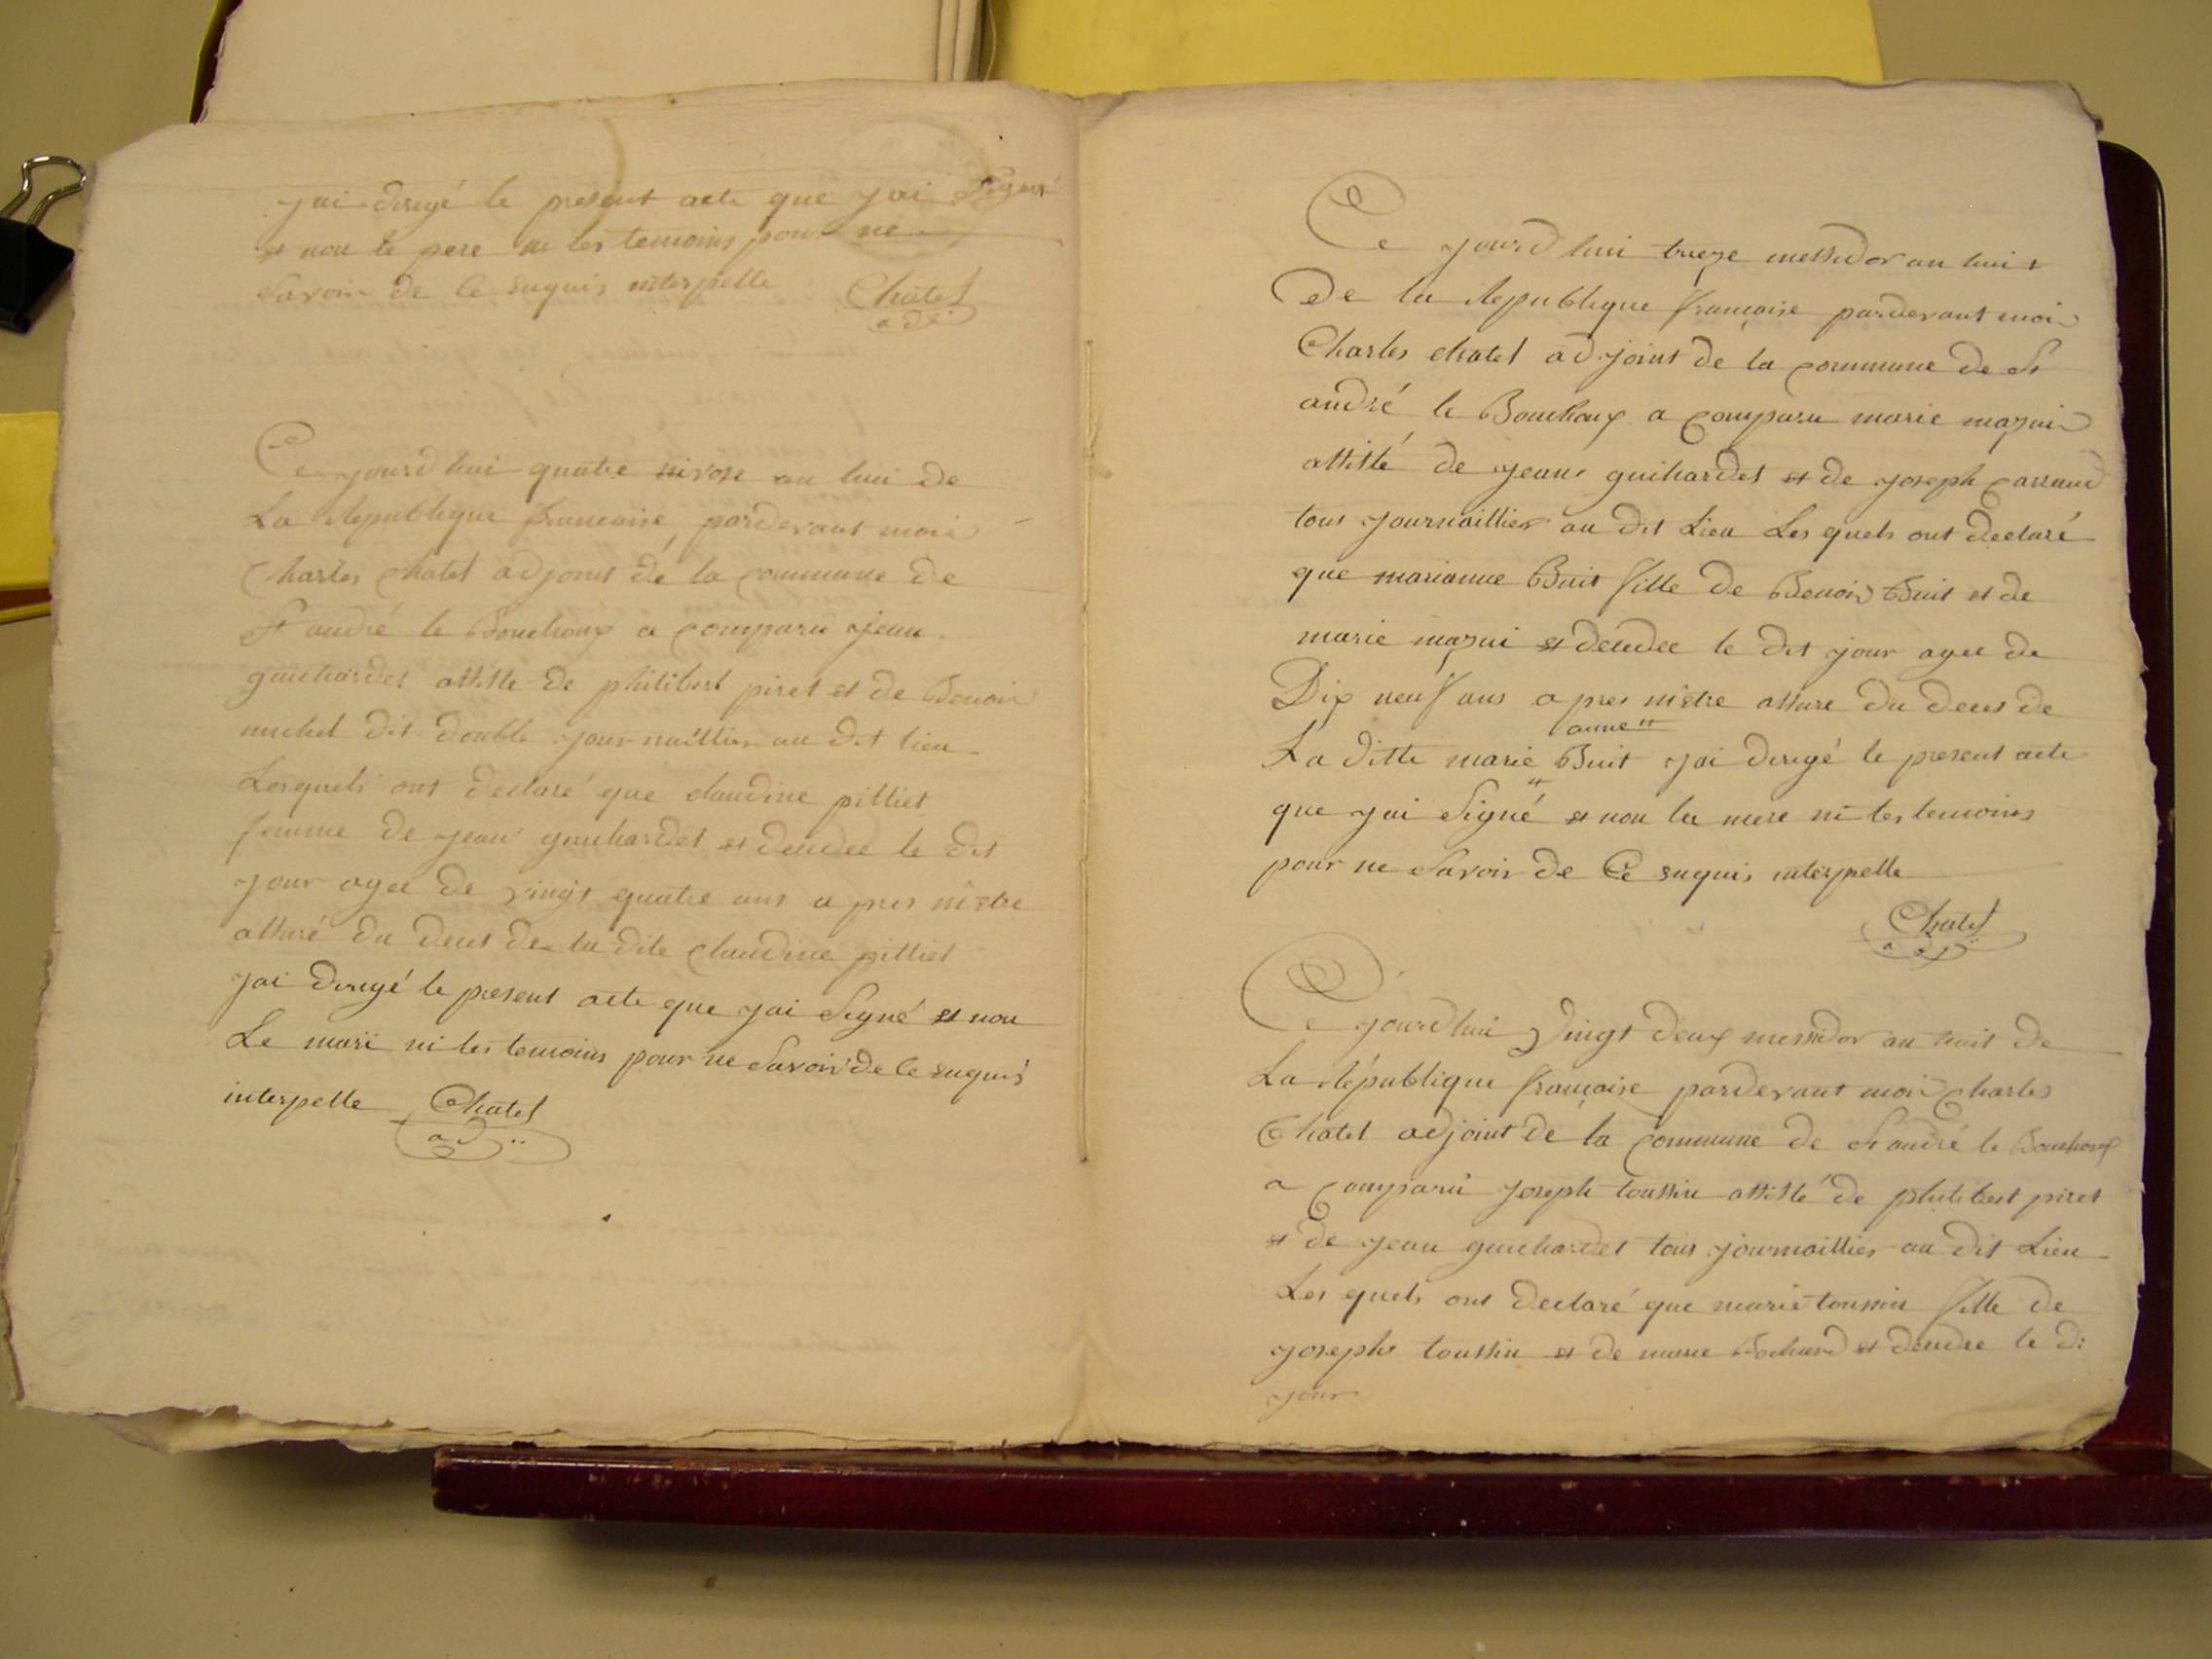 jai dirigé le present acte que jai Signé
et non le pere ni les temoins pour ne
Savoir de Ce enquis interpelle Chatel
adj
Ce jourd hui quatre nivose an huit de
La Republique francaise, pardevant moi
Charles Chatel adjoint de la Commune de
St andré le Bouchoux a Comparu jean
guichardet assiste de philibert piret et de Benoit
michel dit double journaillier au dit lieu
Lesquels ont declaré que claudine pilliet
femme de jean guichardet et decedee le dit
jour agee de vingt quatre ans a pres metre
assuré du deces de la dite Claudine pilliet
jai dirigé le present acte que jai Signé et non
Le mari ni les temoins pour ne Savoir de Ce enquis
interpelle Chatel
adj
Ce jourd hui treize messidor an huit
De la Republique francaise pardevant moi
Charles chatel adjoint de la Commune de St
andré le Bouchoux a Comparu marie mazui
assisté de jean guichardet et de joseph
tous journaillier au dit Lieu Les quels ont declaré
que marianne Buit fille de Benoit Buit et de
marie mazui et decedee le dit jour agee de
Dix neuf ans a pres metre assure du deces de
anne
La ditte marie Buit jai dirigé le present acte
que jai Signé et non la mere ni les temoins
pour ne Savoir de Ce enquis interpelle
Chatel
adj
Ce jourd hui Vingt deux messidor an huit de
La République francaise pardevant moi Charles
Chatel adjoint de la Commune de St andré le Bouchoux
a Comparu joseph toussin assisté de philibert piret
et de jean guichardet tous journaillier au dit Lieu
Les quels ont declaré que marie toussin fille de
joseph toussin et de marie Bochard et decedee le di
jour